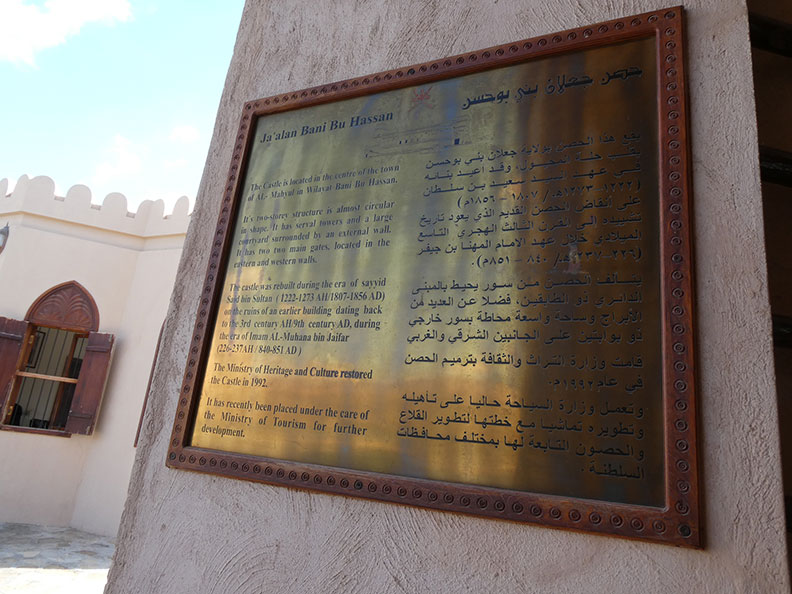 Ja'alan Bani Bu Hassan
The Castle is located in the centre of the town
of AL- Mahyul in Wilayat Bani Bu Hassan.
It's two-storey structure is almost circular
in shape. It has serval towers and a large
courtyard surrounded by an external wall.
It has two two main gates, located in the
eastern and western walls.
The castle was rebuilt during the era of sayyid
Said bin Sultan ( 1222-1273 AH/1807-1856 AD)
on the ruins of an earlier building dating back
to the 3rd century AH/9th century AD, during
the era of Imam AL-Muhana bin Jaifar
(226-237AH / 840-851 AD )
The Ministry of Heritage and Culture restored
the Castle in 1992.
It has recently been placed under the care of
the Ministry of Tourism for further
development.
حصن جعلان بني بوحسن
يقع هذا الحصن بولاية جعلان بني بوحسن
في عهد السيد سعيد بن سلطان
(١٢٢٢-١٢٧٣هـ/ ١٨٠٧ - ١٨٥٦م)
على أنقاض الحصن القديم الذي يعود تاريخ
تشييده إلى القرن الثالث الهجري التاسع
الميلادي خلال عهد الامام المهنا بن جيفر
(٢٢٦-٢٣٧هـ/ ٨٤٠ - ٨٥١م).
يتألف الحصن من سور يحيط بالمبنى
الدائري ذو الطابقين، فضلا عن العديد من
الأبراج وساحة واسعة محاطة بسور خارجي
ذو بوابتين على الجانبين الشرقي والغربي
قامت وزارة التراث والثقافة بترميم الحصن
في عام ١٩٩٢م.
وتعمل وزارة السياحة حاليا على تأهيله
وتطويره تماشيا مع خطتها لتطوير القلاع
والحصون التابعة لها بمختلف محافظات
السلطنة .